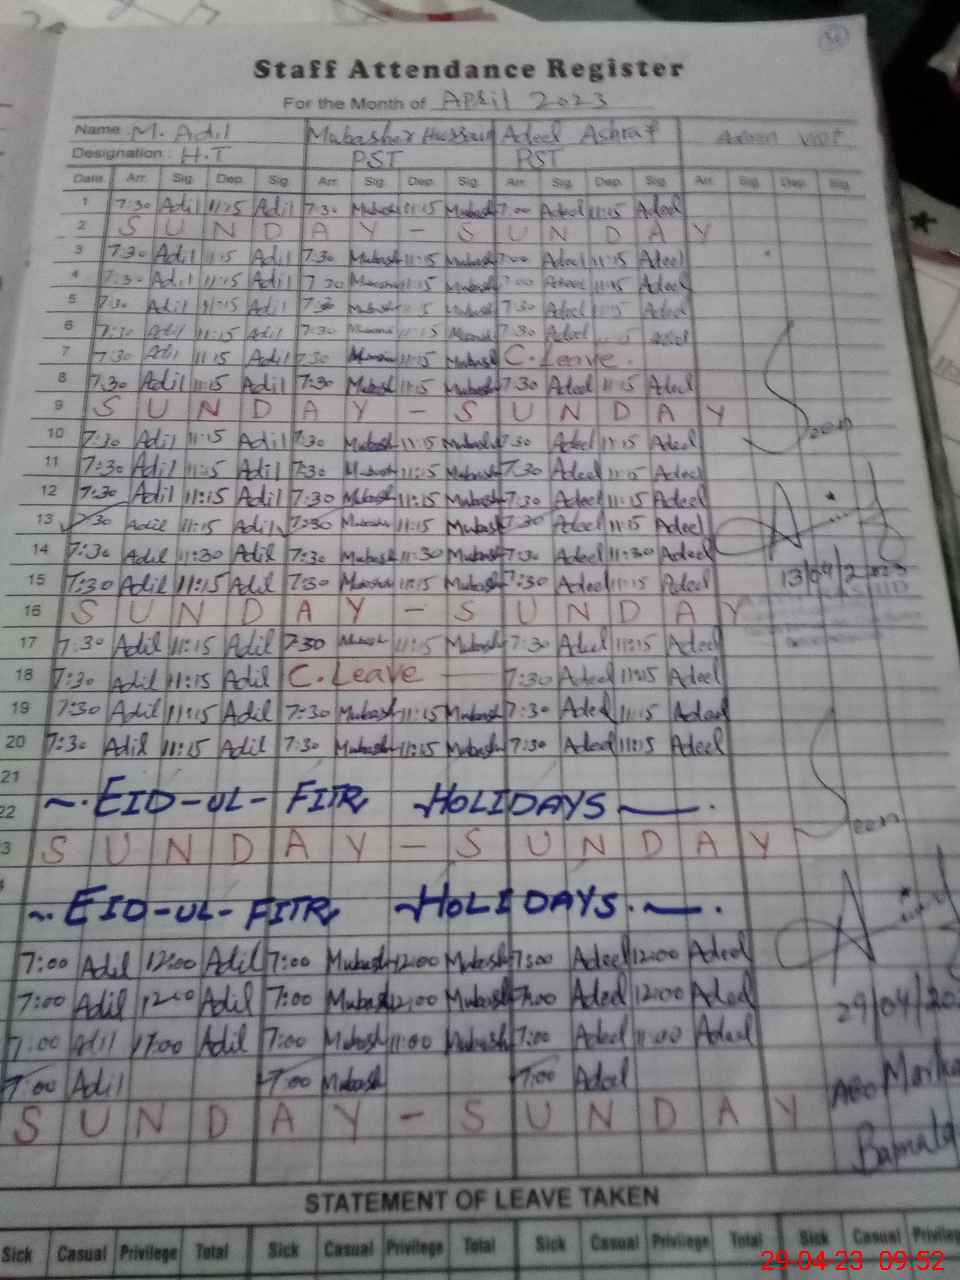 Staff Attendance Register
For the Month of April 2023
Name: M. Adil Mubashar Hussain Adeel Ashraf
Designation: H.T PST PST
Date Arr. Sig. Dep. Sig. Arr. Sig. Dep. Sig. Arr. Sig. Dep. Sig. Arr. Sig. Dep. Sig.
1 7:30 Adil 11:15 Adil 7:30 Mubash 11:15 Mubash 7:00 Adeel 11:15 Adeel
2 S U N D A Y - S U N D A Y
3 7:30 Adil 11:15 Adil 7:30 Mubash 11:15 Mubash 7:00 Adeel 11:15 Adeel
4 7:30 Adil 11:15 Adil 7:30 11:15 Mubash 7:00 Adeel 11:15 Adeel
5 7:30 Adil 11:15 Adil 7:30 Mubash 7:30 Adeel 11:15 Adeel
6 7:30 Adil 11:15 Adil 7:30 11:15 7:30 Adeel Adeel
7 7:30 Adil 11:15 Adil 7:30 11:15 Mubash C. Leave.
8 7:30 Adil 11:15 Adil 7:30 Mubash 11:15 Mubash 7:30 Adeel 11:15 Adeel
9 S U N D A Y - S U N D A Y
Seen
10 7:30 Adil 11:15 Adil 7:30 Mubash 11:15 Mubash 7:30 Adeel 11:15 Adeel
11 7:30 Adil 11:15 Adil 7:30 Mubash 11:15 Mubash 7:30 Adeel 11:15 Adeel
12 7:30 Adil 11:15 Adil 7:30 Mubash 11:15 Mubash 7:30 Adeel 11:15 Adeel
13 7:30 Adil 11:15 Adil 7:30 Mubash 11:15 Mubash 7:30 Adeel 11:15 Adeel
14 7:30 Adil 11:30 Adil 7:30 Mubash 11:30 Mubash 7:30 Adeel 11:30 Adeel
13/04/2023
15 7:30 Adil 11:15 Adil 7:30 11:15 Mubash 7:30 Adeel 11:15 Adeel
16 S U N D A Y - S U N D A Y
17 7:30 Adil 11:15 Adil 7:30 Mubash 11:15 Mubash 7:30 Adeel 11:15 Adeel
18 7:30 Adil 11:15 Adil C. Leave 7:30 Adeel 11:15 Adeel
19 7:30 Adil 11:15 Adil 7:30 Mubash 11:15 Mubash 7:30 Adeel 11:15 Adeel
20 7:30 Adil 11:15 Adil 7:30 Mubash 11:15 Mubash 7:30 Adeel 11:15 Adeel
21
22 EID-UL-FITR HOLIDAYS
Seen
3 S U N D A Y - S U N D A Y
EID-UL-FITR HOLIDAYS.
7:00 Adil 12:00 Adil 7:00 Mubash 12:00 Mubash 7:00 Adeel 12:00 Adeel
7:00 Adil 12:00 Adil 7:00 Mubash 12:00 Mubash 7:00 Adeel 12:00 Adeel
29/04/20
7:00 Adil 11:00 Adil 7:00 Mubash 11:00 Mubash 7:00 Adeel 11:00 Adeel
7:00 Adil 7:00 Mubash 7:00 Adeel
AEO
S U N D A Y - S U N D A Y
STATEMENT OF LEAVE TAKEN
Sick Casual Privilege Total Sick Casual Privilege Total Sick Casual Privilege Total Sick Casual Privileg
29-04-23 09:52